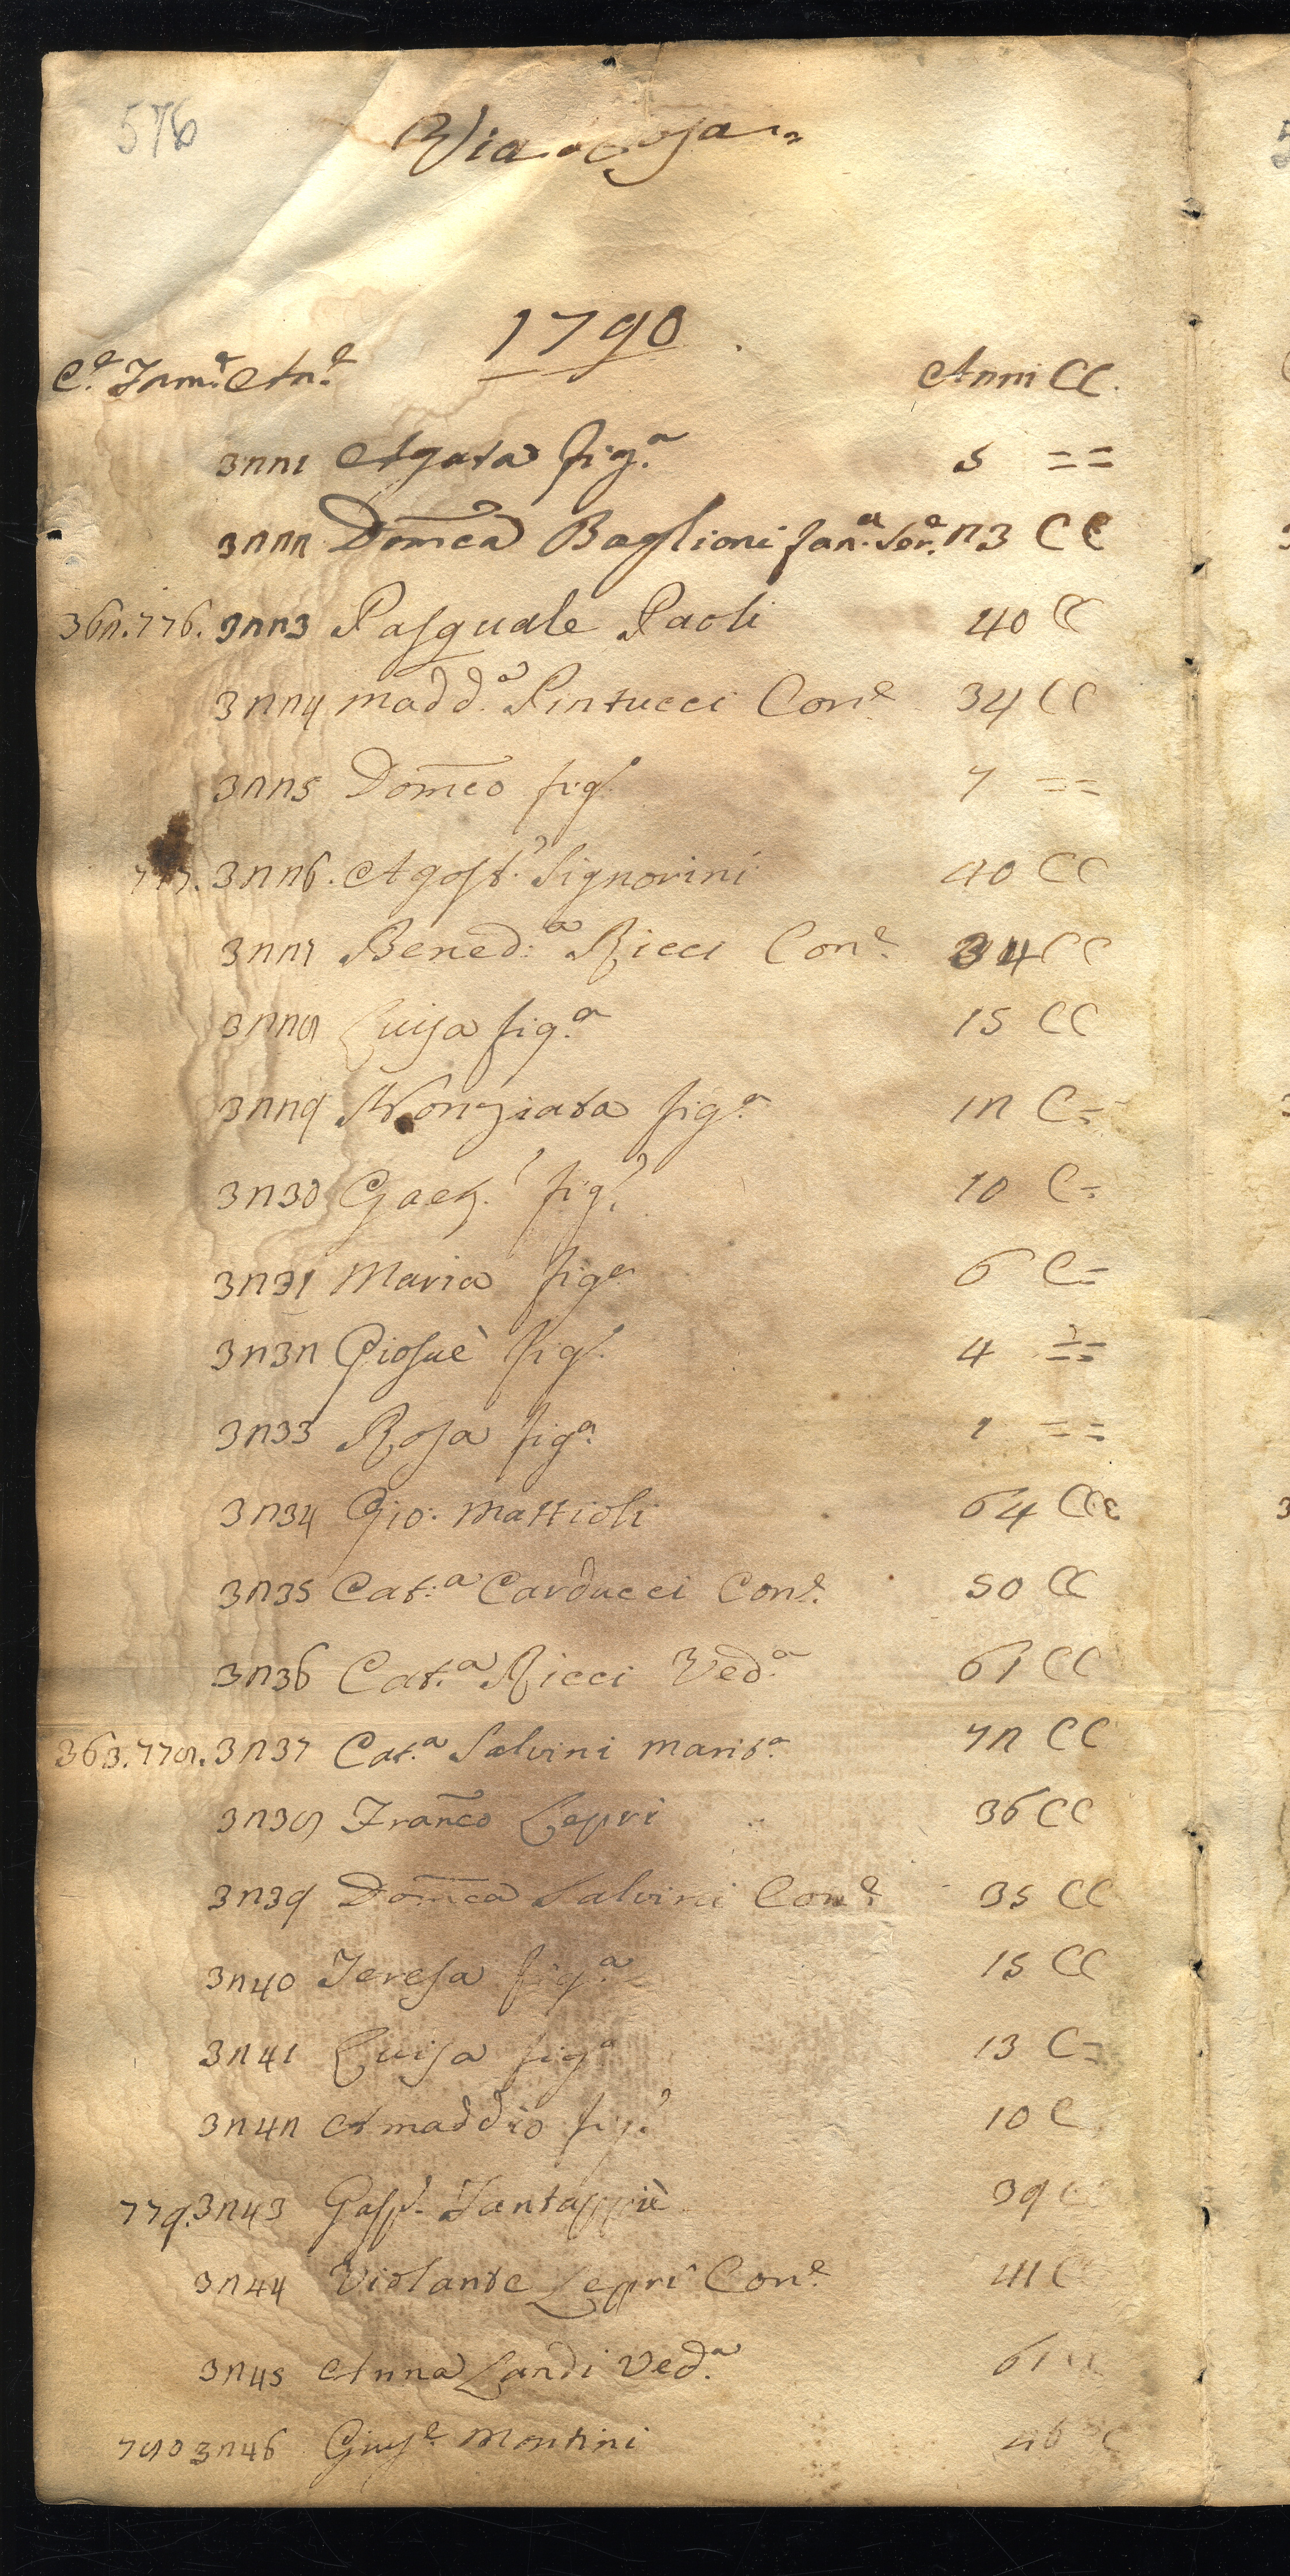 576
Via
1790.
C.e Fam.e An.e Anni CC.
3221 Agata fig.a 5 ==
3222 Dom̅ca Baglioni fan.a Ser.a 23 CC
362.776. 3223 Pasquale Paoli 40 CC
3224 Madd.a Pintucci Con.e 34 CC
3225 Dom̅co fig.o 7 ==
777. 3226. Agost.o Signorini 40 CC
3227 Bened:a Ricci Con.e 34 CC
3228 Luisa fig.a 15 CC
3229 Nonziata fig.a 12 C=
3230 Gaet.o fig.o 10 C=
3231 Maria fig.a 6 C=
3232 Giosuè fig.o 4 ==
3233 Rosa fig.a 1 ==
3234 Gio: Mattioli 64 CCC
3235 Cat:a Carducci Con.e 50 CC
3236 Cat.a Ricci Ved.a 61 CC
363.778. 3237 Cat.a Salvini Marit.a 72 CC
3238 Fran̅co Lepri 36 CC
3239 Dom̅ca Salvini Con.e 35 CC
3240 Teresa fig.a 15 CC
3241 Luisa fig.a 13 C=
3242 Amaddio fig.o 10 C
779. 3243 Gasp.o Santappiè 39
3244 Violante Leppri Con.e 41 C
3245 Anna Landi Ved.a 61
780 3246 Gius.e Montini 46 C